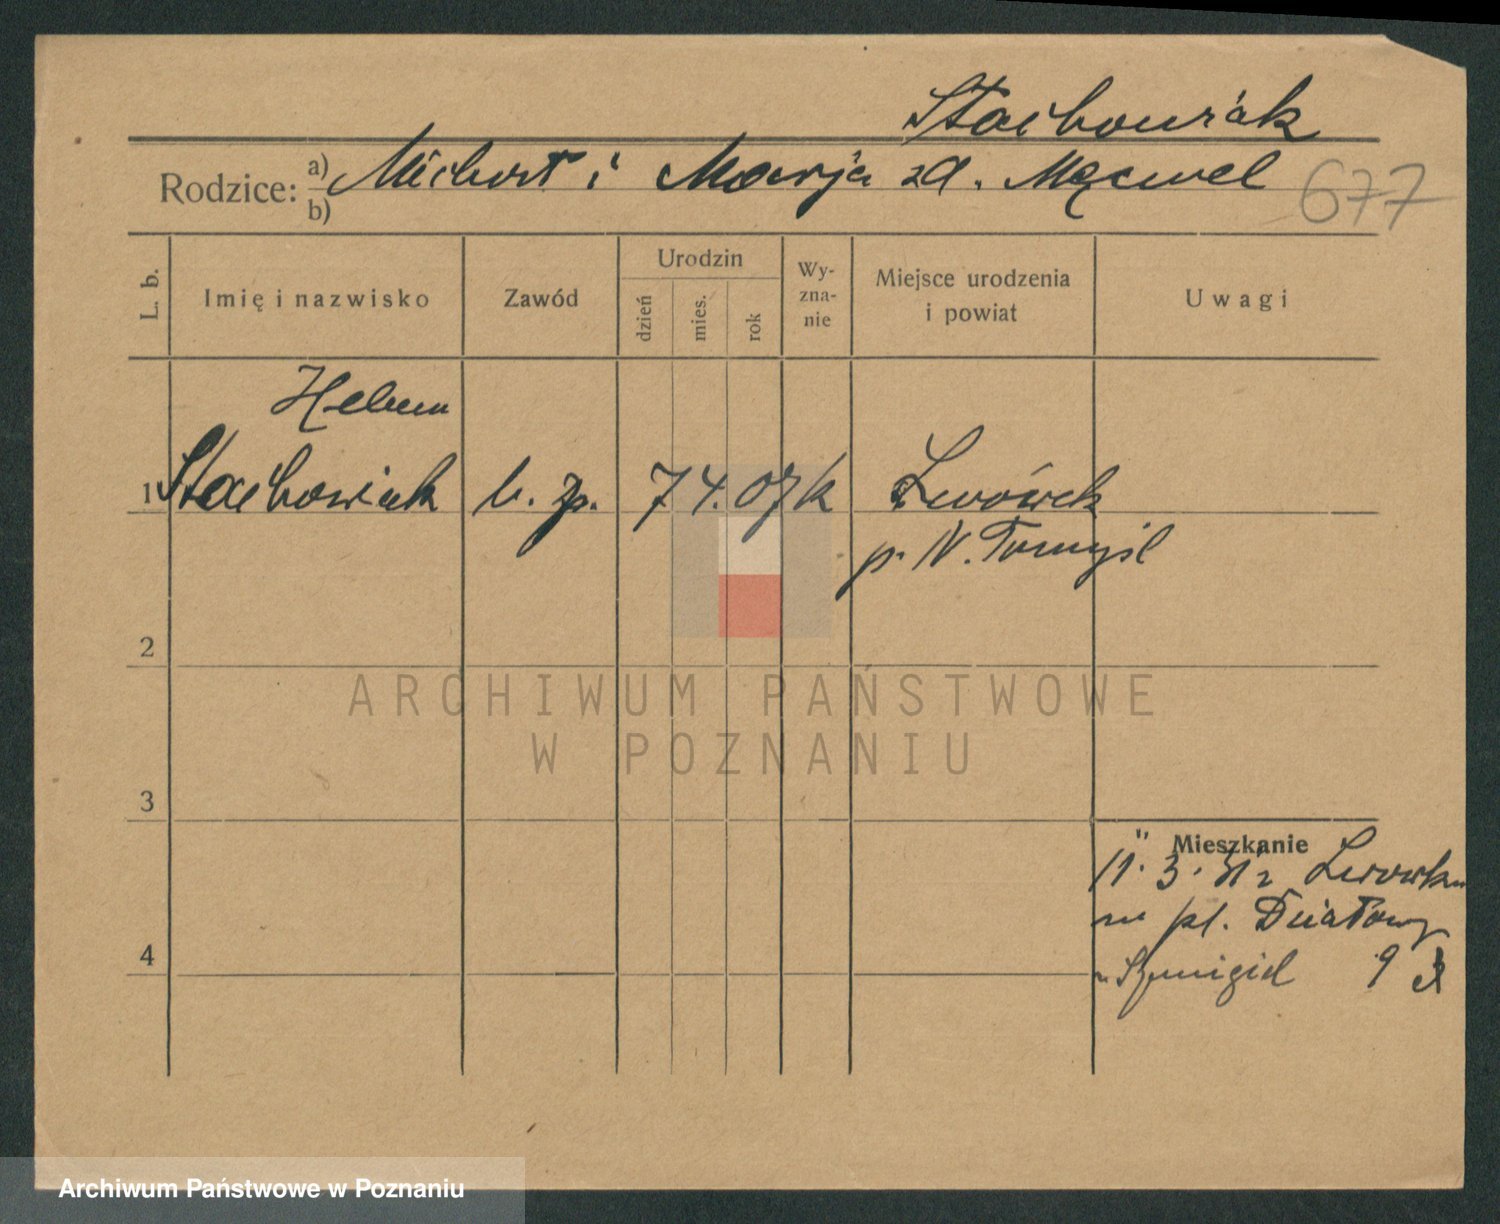 Stachowiak
Rodzice: a) Michał i Marja zd. Męcwel 677
b)
L. b. Imię i nazwisko Zawód Urodzin dzień mies. rok Wy-zna-nie Miejsce urodzenia i powiat Uwagi
Helena
1 Stachowiak b. zp. 7 4. 07 k Lwówek
p. N. Tomyśl
2
ARCHIWUM PAŃSTWOWE
W POZNANIU
3
Mieszkanie
11. 3. 31 z Lwówka
na pl. Działowy
Szmigiel 9
4
Archiwum Państwowe w Poznaniu